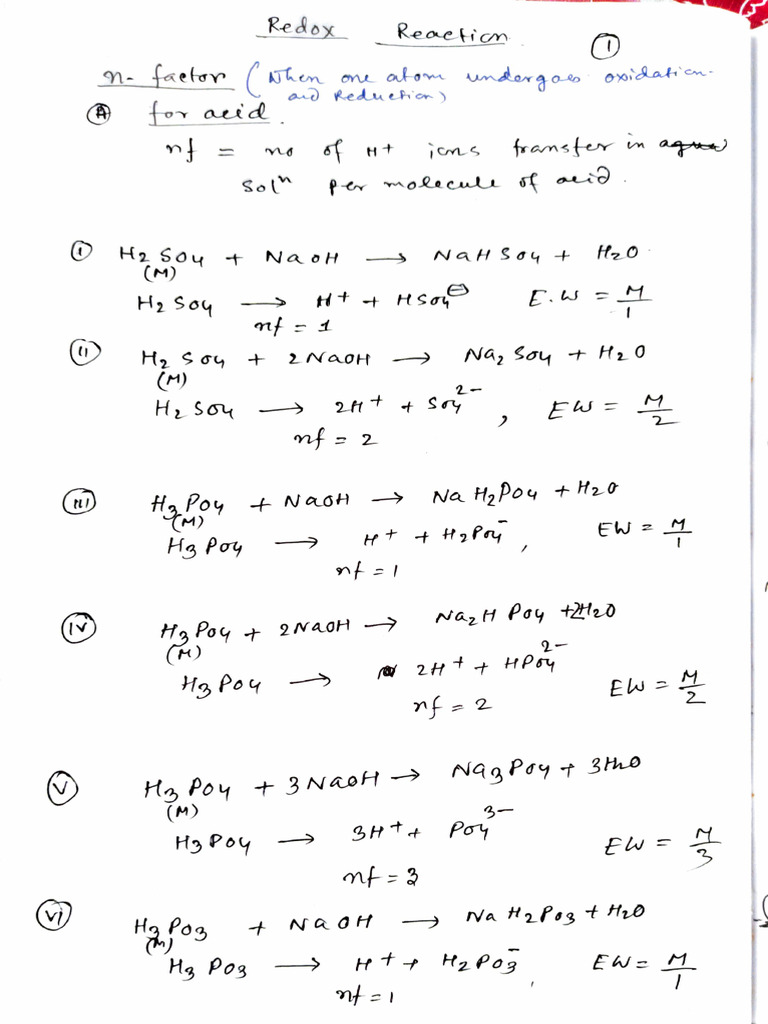 Redox Reaction
①
n-factor (When one atom undergoes oxidation
and Reduction)
Ⓐ for acid.
nf = no of H+ ions transfer in
solⁿ per molecule of acid.
ⓘ H₂SO₄ + NaOH ⟶ NaHSO₄ + H₂O
(M)
H₂SO₄ ⟶ H⁺ + HSO₄⊖ E.W = M/1
nf = 1
(ii) H₂SO₄ + 2NaOH ⟶ Na₂SO₄ + H₂O
(M)
H₂SO₄ ⟶ 2H⁺ + SO₄²⁻, EW = M/2
nf = 2
(iii) H₃PO₄ + NaOH ⟶ NaH₂PO₄ + H₂O
(M)
H₃PO₄ ⟶ H⁺ + H₂PO₄⁻, EW = M/1
nf = 1
(iv) H₃PO₄ + 2NaOH ⟶ Na₂HPO₄ + 2H₂O
(M)
H₃PO₄ ⟶ 2H⁺ + HPO₄²⁻ EW = M/2
nf = 2
(v) H₃PO₄ + 3NaOH ⟶ Na₃PO₄ + 3H₂O
(M)
H₃PO₄ ⟶ 3H⁺ + PO₄³⁻ EW = M/3
nf = 3
(vi) H₃PO₃ + NaOH ⟶ NaH₂PO₃ + H₂O
(M)
H₃PO₃ ⟶ H⁺ + H₂PO₃⁻, EW = M/1
nf = 1